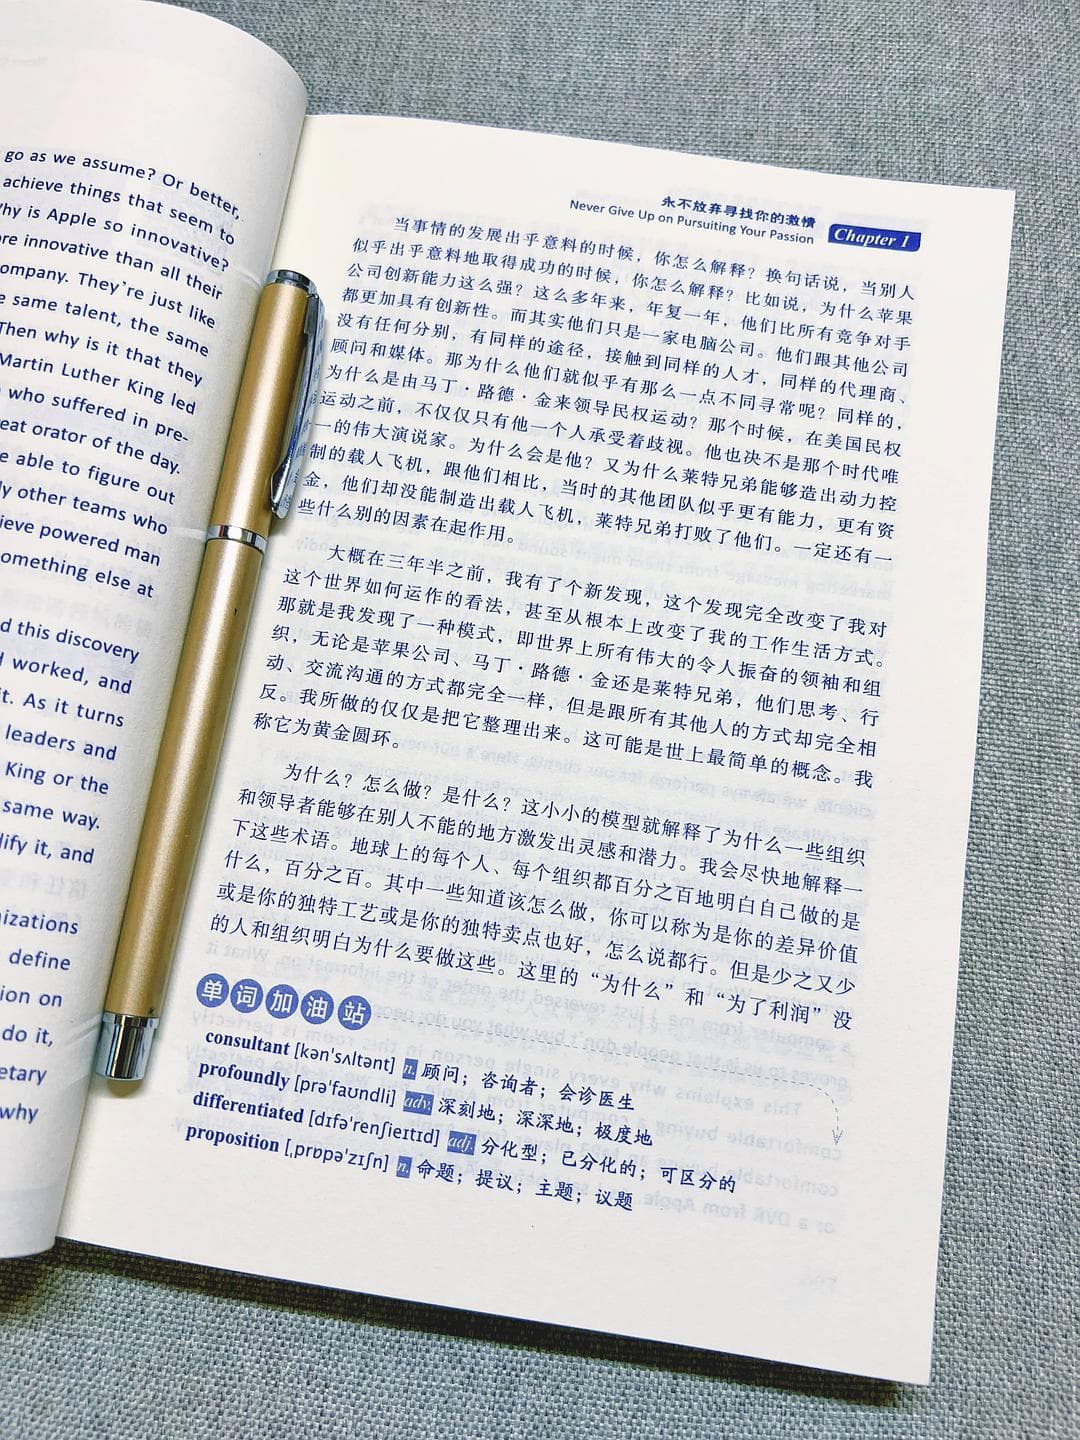 go as we assume? Or better,
achieve things that seem to
hy is Apple so innovative?
re innovative than all their
ompany. They're just like
e same talent, the same
Then why is it that they
Martin Luther King led
who suffered in pre-
eat orator of the day.
e able to figure out
ly other teams who
ieve powered man
omething else at
d this discovery
worked, and
it. As it turns
leaders and
King or the
same way.
lify it, and
nizations
define
ion on
do it,
etary
why
永不放弃寻找你的激情
Never Give Up on Pursuiting Your Passion
Chapter 1
当事情的发展出乎意料的时候，你怎么解释？换句话说，当别人
似乎出乎意料地取得成功的时候，你怎么解释？比如说，为什么苹果
公司创新能力这么强？这么多年来，年复一年，他们比所有竞争对手
都更加具有创新性。而其实他们只是一家电脑公司。他们跟其他公司
没有任何分别，有同样的途径，接触到同样的人才，同样的代理商、
顾问和媒体。那为什么他们就似乎有那么一点不同寻常呢？同样的，
为什么是由马丁·路德·金来领导民权运动？那个时候，在美国民权
运动之前，不仅仅只有他一个人承受着歧视。他也决不是那个时代唯
一的伟大演说家。为什么会是他？又为什么莱特兄弟能够造出动力控
制的载人飞机，跟他们相比，当时的其他团队似乎更有能力，更有资
金，他们却没能制造出载人飞机，莱特兄弟打败了他们。一定还有一
些什么别的因素在起作用。
大概在三年半之前，我有了个新发现，这个发现完全改变了我对
这个世界如何运作的看法，甚至从根本上改变了我的工作生活方式。
那就是我发现了一种模式，即世界上所有伟大的令人振奋的领袖和组
织，无论是苹果公司、马丁·路德·金还是莱特兄弟，他们思考、行
动、交流沟通的方式都完全一样，但是跟所有其他人的方式却完全相
反。我所做的仅仅是把它整理出来。这可能是世上最简单的概念。我
称它为黄金圆环。
为什么？怎么做？是什么？这小小的模型就解释了为什么一些组织
和领导者能够在别人不能的地方激发出灵感和潜力。我会尽快地解释一
下这些术语。地球上的每个人、每个组织都百分之百地明白自己做的是
什么，百分之百。其中一些知道该怎么做，你可以称为是你的差异价值
或是你的独特工艺或是你的独特卖点也好，怎么说都行。但是少之又少
的人和组织明白为什么要做这些。这里的“为什么”和“为了利润”没
单词加油站
consultant [kən'sʌltənt] n. 顾问；咨询者；会诊医生
profoundly [prə'faʊndli] adv. 深刻地；深深地；极度地
differentiated [dɪfə'renʃieɪtɪd] adj. 分化型；已分化的；可区分的
proposition [ˌprɒpə'zɪʃn] n. 命题；提议；主题；议题